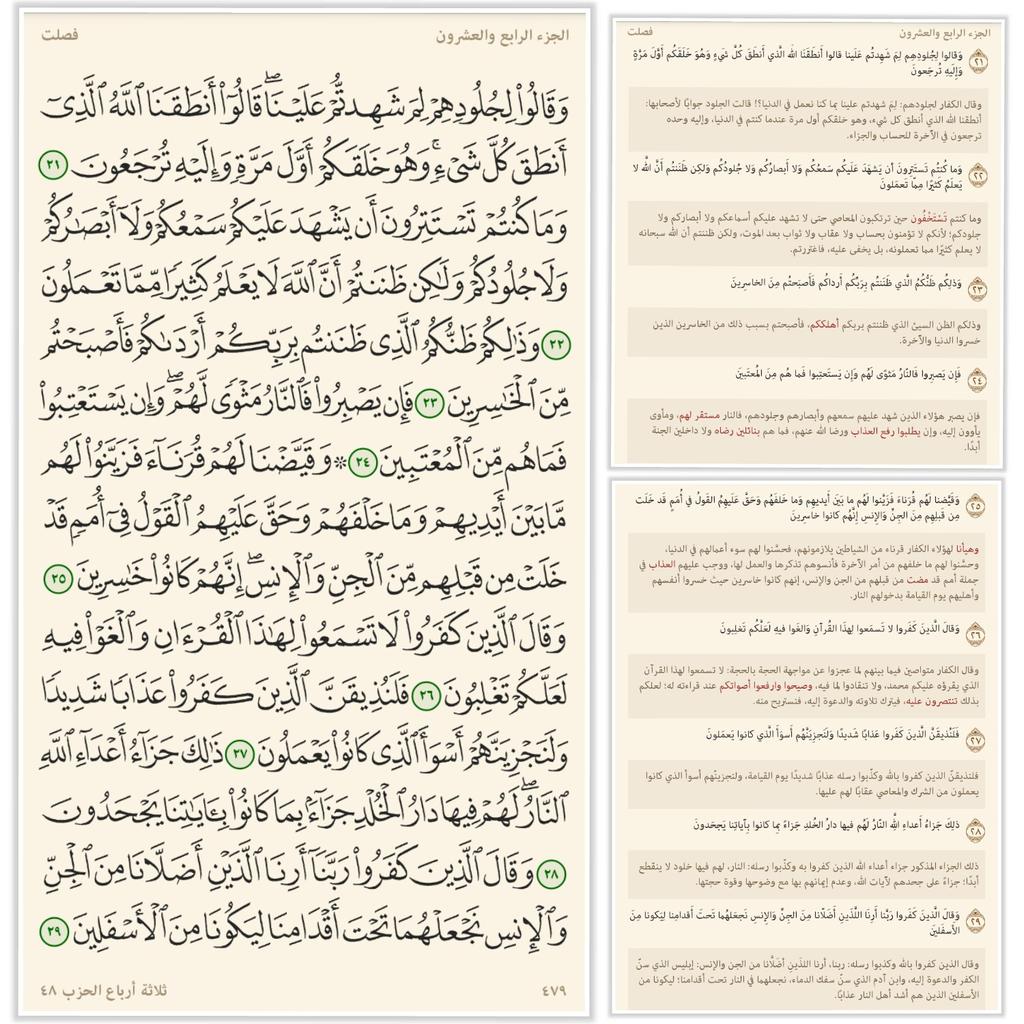 فصلت الجزء الرابع والعشرون
وَقَالُواْ لِجُلُودِهِمۡ لِمَ شَهِدتُّمۡ عَلَيۡنَاۖ قَالُوٓاْ أَنطَقَنَا ٱللَّهُ ٱلَّذِيٓ
أَنطَقَ كُلَّ شَيۡءٖۚ وَهُوَ خَلَقَكُمۡ أَوَّلَ مَرَّةٖ وَإِلَيۡهِ تُرۡجَعُونَ ٢١
وَمَا كُنتُمۡ تَسۡتَتِرُونَ أَن يَشۡهَدَ عَلَيۡكُمۡ سَمۡعُكُمۡ وَلَآ أَبۡصَٰرُكُمۡ
وَلَا جُلُودُكُمۡ وَلَٰكِن ظَنَنتُمۡ أَنَّ ٱللَّهَ لَا يَعۡلَمُ كَثِيرٗا مِّمَّا تَعۡمَلُونَ
٢٢ وَذَٰلِكُمۡ ظَنُّكُمُ ٱلَّذِي ظَنَنتُم بِرَبِّكُمۡ أَرۡدَىٰكُمۡ فَأَصۡبَحۡتُم
مِّنَ ٱلۡخَٰسِرِينَ ٢٣ فَإِن يَصۡبِرُواْ فَٱلنَّارُ مَثۡوٗى لَّهُمۡۖ وَإِن يَسۡتَعۡتِبُواْ
فَمَا هُم مِّنَ ٱلۡمُعۡتَبِينَ ٢٤ ۞ وَقَيَّضۡنَا لَهُمۡ قُرَنَآءَ فَزَيَّنُواْ لَهُم
مَّا بَيۡنَ أَيۡدِيهِمۡ وَمَا خَلۡفَهُمۡ وَحَقَّ عَلَيۡهِمُ ٱلۡقَوۡلُ فِيٓ أُمَمٖ قَدۡ
خَلَتۡ مِن قَبۡلِهِم مِّنَ ٱلۡجِنِّ وَٱلۡإِنسِۖ إِنَّهُمۡ كَانُواْ خَٰسِرِينَ ٢٥
وَقَالَ ٱلَّذِينَ كَفَرُواْ لَا تَسۡمَعُواْ لِهَٰذَا ٱلۡقُرۡءَانِ وَٱلۡغَوۡاْ فِيهِ
لَعَلَّكُمۡ تَغۡلِبُونَ ٢٦ فَلَنُذِيقَنَّ ٱلَّذِينَ كَفَرُواْ عَذَابٗا شَدِيدٗا
وَلَنَجۡزِيَنَّهُمۡ أَسۡوَأَ ٱلَّذِي كَانُواْ يَعۡمَلُونَ ٢٧ ذَٰلِكَ جَزَآءُ أَعۡدَآءِ ٱللَّهِ
ٱلنَّارُۖ لَهُمۡ فِيهَا دَارُ ٱلۡخُلۡدِ جَزَآءَۢ بِمَا كَانُواْ بِـَٔايَٰتِنَا يَجۡحَدُونَ
٢٨ وَقَالَ ٱلَّذِينَ كَفَرُواْ رَبَّنَآ أَرِنَا ٱلَّذَيۡنِ أَضَلَّانَا مِنَ ٱلۡجِنِّ
وَٱلۡإِنسِ نَجۡعَلۡهُمَا تَحۡتَ أَقۡدَامِنَا لِيَكُونَا مِنَ ٱلۡأَسۡفَلِينَ ٢٩
٤٧٩ ثلاثة أرباع الحزب ٤٨
الجزء الرابع والعشرون فصلت
٢١ وَقالوا لِجُلودِهِم لِمَ شَهِدتُم عَلَينا قالوا أَنطَقَنَا اللَّهُ الَّذي أَنطَقَ كُلَّ شَيءٍ وَهُوَ خَلَقَكُم أَوَّلَ مَرَّةٍ
وَإِلَيهِ تُرجَعونَ
وقال الكفار لجلودهم: لِمَ شهدتم علينا بما كنا نعمل في الدنيا؟! قالت الجلود جوابًا لأصحابها:
أنطقنا الله الذي أنطق كل شيء، وهو خلقكم أول مرة عندما كنتم في الدنيا، وإليه وحده
ترجعون في الآخرة للحساب والجزاء.
٢٢ وَما كُنتُم تَستَتِرونَ أَن يَشهَدَ عَلَيكُم سَمعُكُم وَلا أَبصارُكُم وَلا جُلودُكُم وَلكِن ظَنَنتُم أَنَّ اللَّهَ لا
يَعلَمُ كَثيرًا مِمّا تَعمَلونَ
وما كنتم تَسْتَخْفُون حين ترتكبون المعاصي حتى لا تشهد عليكم أسماعكم ولا أبصاركم ولا
جلودكم؛ لأنكم لا تؤمنون بحساب ولا عقاب ولا ثواب بعد الموت، ولكن ظننتم أن الله سبحانه
لا يعلم كثيرًا مما تعملونه، بل يخفى عليه، فاغتررتم.
٢٣ وَذلِكُم ظَنُّكُمُ الَّذي ظَنَنتُم بِرَبِّكُم أَرداكُم فَأَصبَحتُم مِنَ الخاسِرينَ
وذلكم الظن السيئ الذي ظننتم بربكم أهلككم، فأصبحتم بسبب ذلك من الخاسرين الذين
خسروا الدنيا والآخرة.
٢٤ فَإِن يَصبِروا فَالنّارُ مَثوًى لَهُم وَإِن يَستَعتِبوا فَما هُم مِنَ المُعتَبينَ
فإن يصبر هؤلاء الذين شهد عليهم سمعهم وأبصارهم وجلودهم، فالنار مستقر لهم، ومأوى
يأوون إليه، وإن يطلبوا رفع العذاب ورضا الله عنهم، فما هم بنائلين رضاه ولا داخلين الجنة
أبدًا.
٢٥ وَقَيَّضنا لَهُم قُرَناءَ فَزَيَّنوا لَهُم ما بَينَ أَيديهِم وَما خَلفَهُم وَحَقَّ عَلَيهِمُ القَولُ في أُمَمٍ قَد خَلَت
مِن قَبلِهِم مِنَ الجِنِّ وَالإِنسِ إِنَّهُم كانوا خاسِرينَ
وهيأنا لهؤلاء الكفار قرناء من الشياطين يلازمونهم، فحسَّنوا لهم سوء أعمالهم في الدنيا،
وحسَّنوا لهم ما خلفهم من أمر الآخرة فأنسوهم تذكرها والعمل لها، ووجب عليهم العذاب في
جملة أمم قد مضت من قبلهم من الجن والإنس، إنهم كانوا خاسرين حيث خسروا أنفسهم
وأهليهم يوم القيامة بدخولهم النار.
٢٦ وَقالَ الَّذينَ كَفَروا لا تَسمَعوا لِهذَا القُرآنِ وَالغَوا فيهِ لَعَلَّكُم تَغلِبونَ
وقال الكفار متواصين فيما بينهم لما عجزوا عن مواجهة الحجة بالحجة: لا تسمعوا لهذا القرآن
الذي يقرؤه عليكم محمد، ولا تنقادوا لما فيه، وصيحوا وارفعوا أصواتكم عند قراءته له؛ لعلكم
بذلك تنتصرون عليه، فيترك تلاوته والدعوة إليه، فنستريح منه.
٢٧ فَلَنُذيقَنَّ الَّذينَ كَفَروا عَذابًا شَديدًا وَلَنَجزِيَنَّهُم أَسوَأَ الَّذي كانوا يَعمَلونَ
فلنذيقنّ الذين كفروا بالله وكذّبوا رسله عذابًا شديدًا يوم القيامة، ولنجزينّهم أسوأ الذي كانوا
يعملون من الشرك والمعاصي عقابًا لهم عليها.
٢٨ ذلِكَ جَزاءُ أَعداءِ اللَّهِ النّارُ لَهُم فيها دارُ الخُلدِ جَزاءً بِما كانوا بِآياتِنا يَجحَدونَ
ذلك الجزاء المذكور جزاء أعداء الله الذين كفروا به وكذّبوا رسله: النار، لهم فيها خلود لا ينقطع
أبدًا؛ جزاءً على جحدهم لآيات الله، وعدم إيمانهم بها مع وضوحها وقوة حجتها.
٢٩ وَقالَ الَّذينَ كَفَروا رَبَّنا أَرِنَا اللَّذَينِ أَضَلّانا مِنَ الجِنِّ وَالإِنسِ نَجعَلهُما تَحتَ أَقدامِنا لِيَكونا مِنَ
الأَسفَلينَ
وقال الذين كفروا بالله وكذبوا رسله: ربنا، أرنا اللذَينِ أضَلَّانا من الجن والإنس: إبليس الذي سنّ
الكفر والدعوة إليه، وابن آدم الذي سنّ سفك الدماء، نجعلهما في النار تحت أقدامنا؛ ليكونا من
الأسفلين الذين هم أشد أهل النار عذابًا.